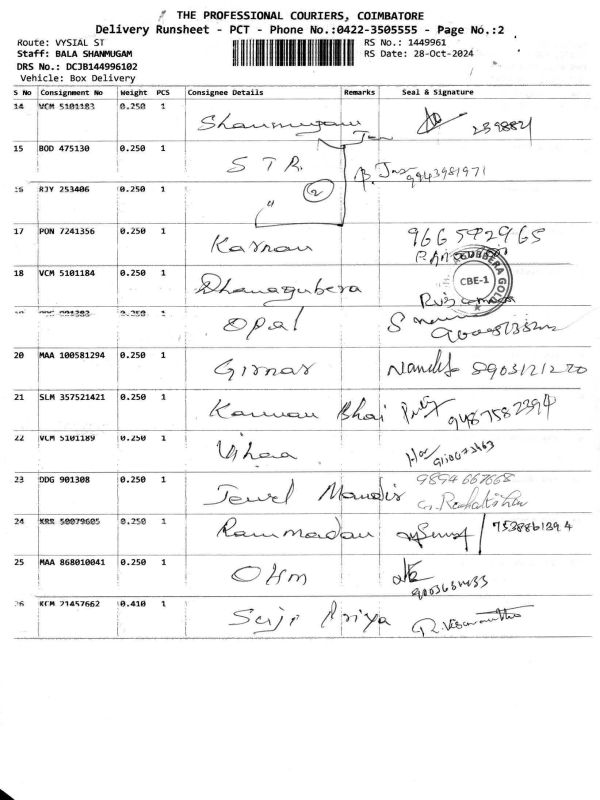 THE PROFESSIONAL COURIERS, COIMBATORE
Delivery Runsheet - PCT - Phone No.:0422-3505555 - Page No.:2
Route: VYSIAL ST RS No.: 1449961
Staff: BALA SHANMUGAM RS Date: 28-Oct-2024
DRS No.: DCJB144996102
Vehicle: Box Delivery
S No Consignment No Weight PCS Consignee Details Remarks Seal & Signature
14 VCM 5101183 0.250 1 Shanmugam
15 BOD 475130 0.250 1 STR. 9943981971
16 RJY 253406 0.250 1 " 2
17 PON 7241356 0.250 1 Karnan 9665792965
18 VCM 5101184 0.250 1 Dhanagubera CBE-1
0.250 1 Opal
20 MAA 100581294 0.250 1 Girnar 8903121270
21 SLM 357521421 0.250 1 Kannan Bhai 9487582394
22 VCM 5101189 0.250 1 Vihaa
23 DDG 901308 0.250 1 Jewel Mandir 9894667668
24 KRR 50079605 0.250 1 Rammadan 7538861394
25 MAA 868010041 0.250 1 Ohm
26 KCM 21457662 0.410 1 Priya